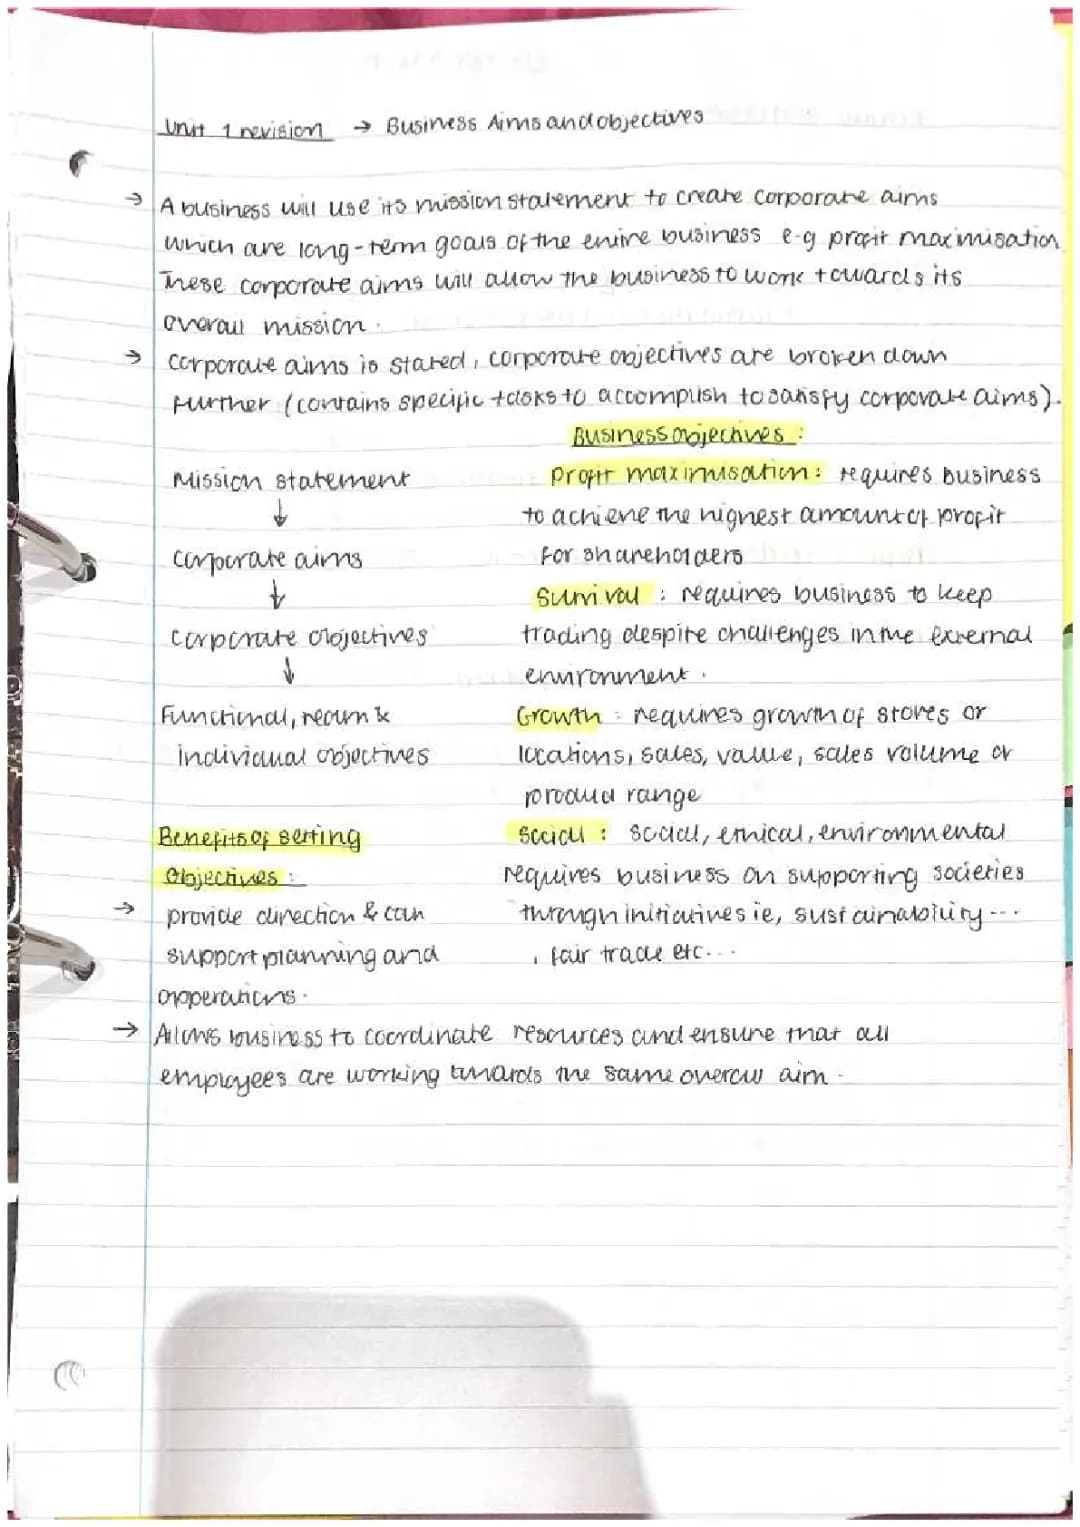 Unit 1 revision → Business Aims and objectives
→ A business will use its mission statement to create corporate aims
which are long-term goals of the entire business e-g profit maximisation
These corporate aims will allow the business to work towards its
overall mission.
→ corporate aims is stated, corporate objectives are broken down
further (contains specific tasks to accomplish to satisfy corporate aims).
Mission statement
↓
corporate aims
↓
corporate objectives
↓
Functional, team &
individual objectives
Benefits of setting
Objectives:
→ provide direction & can
support planning and
opperations.
→ Allows business to coordinate resources and ensure that all
employees are working towards the same overall aim.
Business objectives:
profit maximisation: requires business
to achieve the highest amount of profit
for shareholders
Survival: requires business to keep
trading despite challenges in the external
environment.
Growth: requires growth of stores or
locations, sales, value, sales volume or
product range
Social: social, ethical, environmental
requires business on supporting societies
through initiatives ie, sustainability---
, fair trade etc...